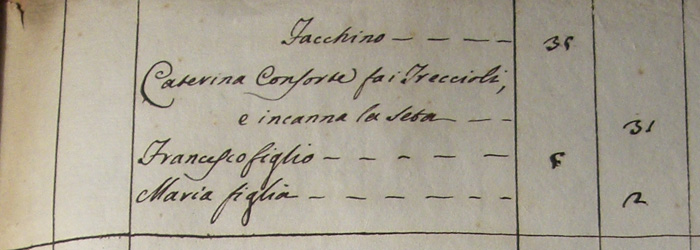 Facchino 35
Caterina Consorte fa i Treccioli,
e incanna la seta 31
Francesco figlio
Maria figlia 2